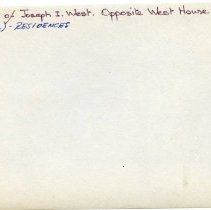 of Joseph I. West. Opposite West House.
) - RESIDENCES